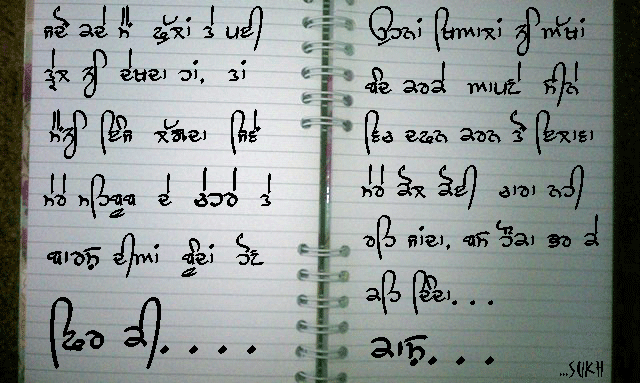 ਜਦੋਂ ਕਦੇ ਮੈਂ ਫੁੱਲਾਂ ਤੇ ਪਈ
ਤ੍ਰੇਲ ਨੂੰ ਦੇਖਦਾ ਹਾਂ, ਤਾਂ
ਮੈਨੂੰ ਇੰਜ ਲੱਗਦਾ ਜਿਵੇਂ
ਮੇਰੇ ਮਹਿਬੂਬ ਦੇ ਚੇਹਰੇ ਤੇ
ਬਾਰਸ਼ ਦੀਆਂ ਬੂੰਦਾਂ ਹੋਣ
ਫਿਰ ਕੀ....
ਉਹਨਾਂ ਖਿਆਲਾਂ ਨੂੰ ਅੱਖਾਂ
ਬੰਦ ਕਰਕੇ ਆਪਣੇ ਸੀਨੇ
ਵਿਚ ਦਫਨ ਕਰਨ ਤੋਂ ਇਲਾਵਾ
ਮੇਰੇ ਕੋਲ ਕੋਈ ਚਾਰਾ ਨਹੀਂ
ਰਹਿ ਜਾਂਦਾ, ਬਸ ਹੌਕਾ ਭਰ ਕੇ
ਕਹਿ ਦਿੰਦਾ...
ਕਾਸ਼...
...SUKH